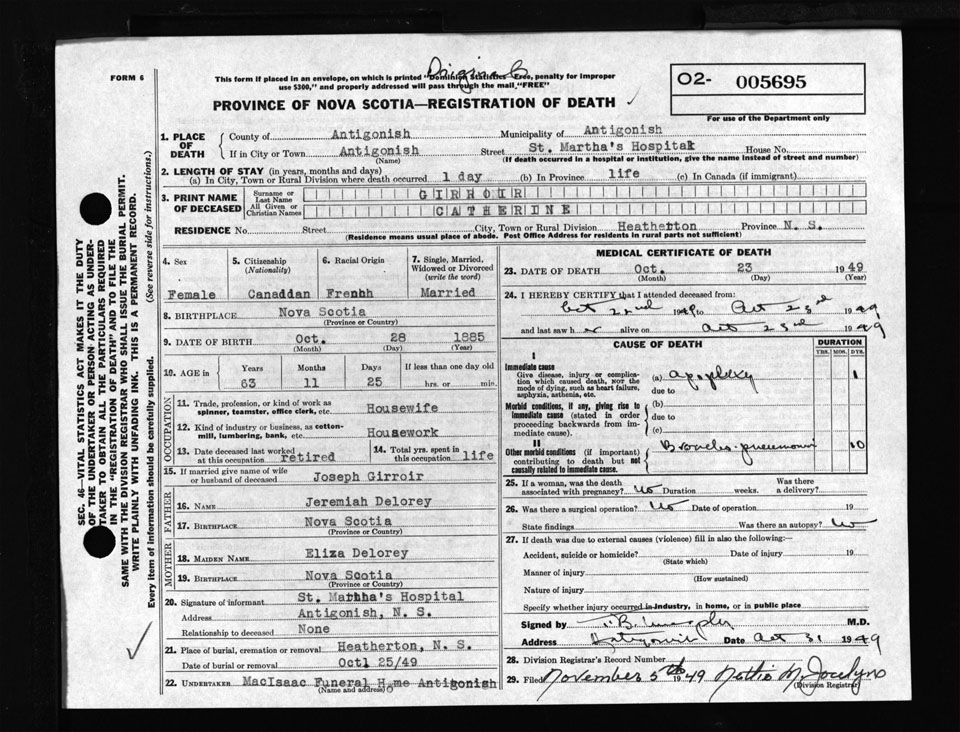 Original
FORM 6
This form if placed in an envelope, on which is printed "Dominion Statistics—Free, penalty for improper
use $300," and properly addressed will pass through the mail, "FREE"
O2- 005695
For use of the Department only
PROVINCE OF NOVA SCOTIA—REGISTRATION OF DEATH ✓
1. PLACE OF DEATH
County of Antigonish Municipality of Antigonish
If in City or Town Antigonish Street St. Martha's Hospital House No.
(Name) (If death occurred in a hospital or institution, give the name instead of street and number)
2. LENGTH OF STAY (in years, months and days)
(a) In City, Town or Rural Division where death occurred 1 day (b) In Province life (c) In Canada (if immigrant)
3. PRINT NAME OF DECEASED
Surname or Last Name GIRROIR
All Given or Christian Names CATHERINE
RESIDENCE No. Street City, Town or Rural Division Heatherton Province N. S.
(Residence means usual place of abode. Post Office Address for residents in rural parts not sufficient)
4. Sex 5. Citizenship (Nationality) 6. Racial Origin 7. Single, Married, Widowed or Divorced (write the word)
Female Canaddan Frenbh Married
8. BIRTHPLACE Nova Scotia
(Province or Country)
9. DATE OF BIRTH Oct. 28 1885
(Month) (Day) (Year)
10. AGE in Years Months Days If less than one day old
63 11 25 hrs. or min.
OCCUPATION
11. Trade, profession, or kind of work as spinner, teamster, office clerk, etc. Housewife
12. Kind of industry or business, as cotton-mill, lumbering, bank, etc. Housework
13. Date deceased last worked at this occupation retired 14. Total yrs. spent in this occupation life
15. If married give name of wife or husband of deceased Joseph Girroir
FATHER
16. NAME Jeremiah Delorey
17. BIRTHPLACE Nova Scotia
(Province or Country)
MOTHER
18. MAIDEN NAME Eliza Delorey
19. BIRTHPLACE Nova Scotia
(Province or Country)
20. Signature of informant St. Martha's Hospital
Address Antigonish, N. S.
Relationship to deceased None
21. Place of burial, cremation or removal Heatherton, N. S.
Date of burial or removal Octl 25/49
22. UNDERTAKER MacIsaac Funeral Home Antigonish
(Name and address)
MEDICAL CERTIFICATE OF DEATH
23. DATE OF DEATH Oct. 23 1949
(Month) (Day) (Year)
24. I HEREBY CERTIFY that I attended deceased from:
Oct 22nd 1949 to Oct 23rd 1949
and last saw her alive on Oct 23rd 1949
CAUSE OF DEATH DURATION
YRS. MOS. DYS.
I
Immediate cause
Give disease, injury or complication which caused death, NOT the mode of dying, such as heart failure, asphyxia, asthenia, etc.
(a) apoplexy 1
due to
Morbid conditions, if any, giving rise to immediate cause (stated in order proceeding backwards from immediate cause).
(b)
due to
(c)
II
Other morbid conditions (if important) contributing to death but not causally related to immediate cause.
Broncho-pneumonia 10
25. If a woman, was the death associated with pregnancy? No Duration weeks. Was there a delivery?
26. Was there a surgical operation? No Date of operation 19
State findings Was there an autopsy? No
27. If death was due to external causes (violence) fill in also the following:—
Accident, suicide or homicide? Date of injury 19
(State which)
Manner of injury
(How sustained)
Nature of injury
Specify whether injury occurred in industry, in home, or in public place
Signed by M.D.
Address Antigonish Date Oct 31 1949
28. Division Registrar's Record Number
29. Filed November 5th 1949 Nettie M. Jocelyn
(Division Registrar)
SEC. 46—VITAL STATISTICS ACT MAKES IT THE DUTY
OF THE UNDERTAKER OR PERSON ACTING AS UNDER-
TAKER TO OBTAIN ALL THE PARTICULARS REQUIRED
IN THE "REGISTRATION OF DEATH" AND TO FILE THE
SAME WITH THE DIVISION REGISTRAR WHO SHALL ISSUE THE BURIAL PERMIT.
WRITE PLAINLY WITH UNFADING INK. THIS IS A PERMANENT RECORD.
Every item of information should be carefully supplied. (See reverse side for instructions.)